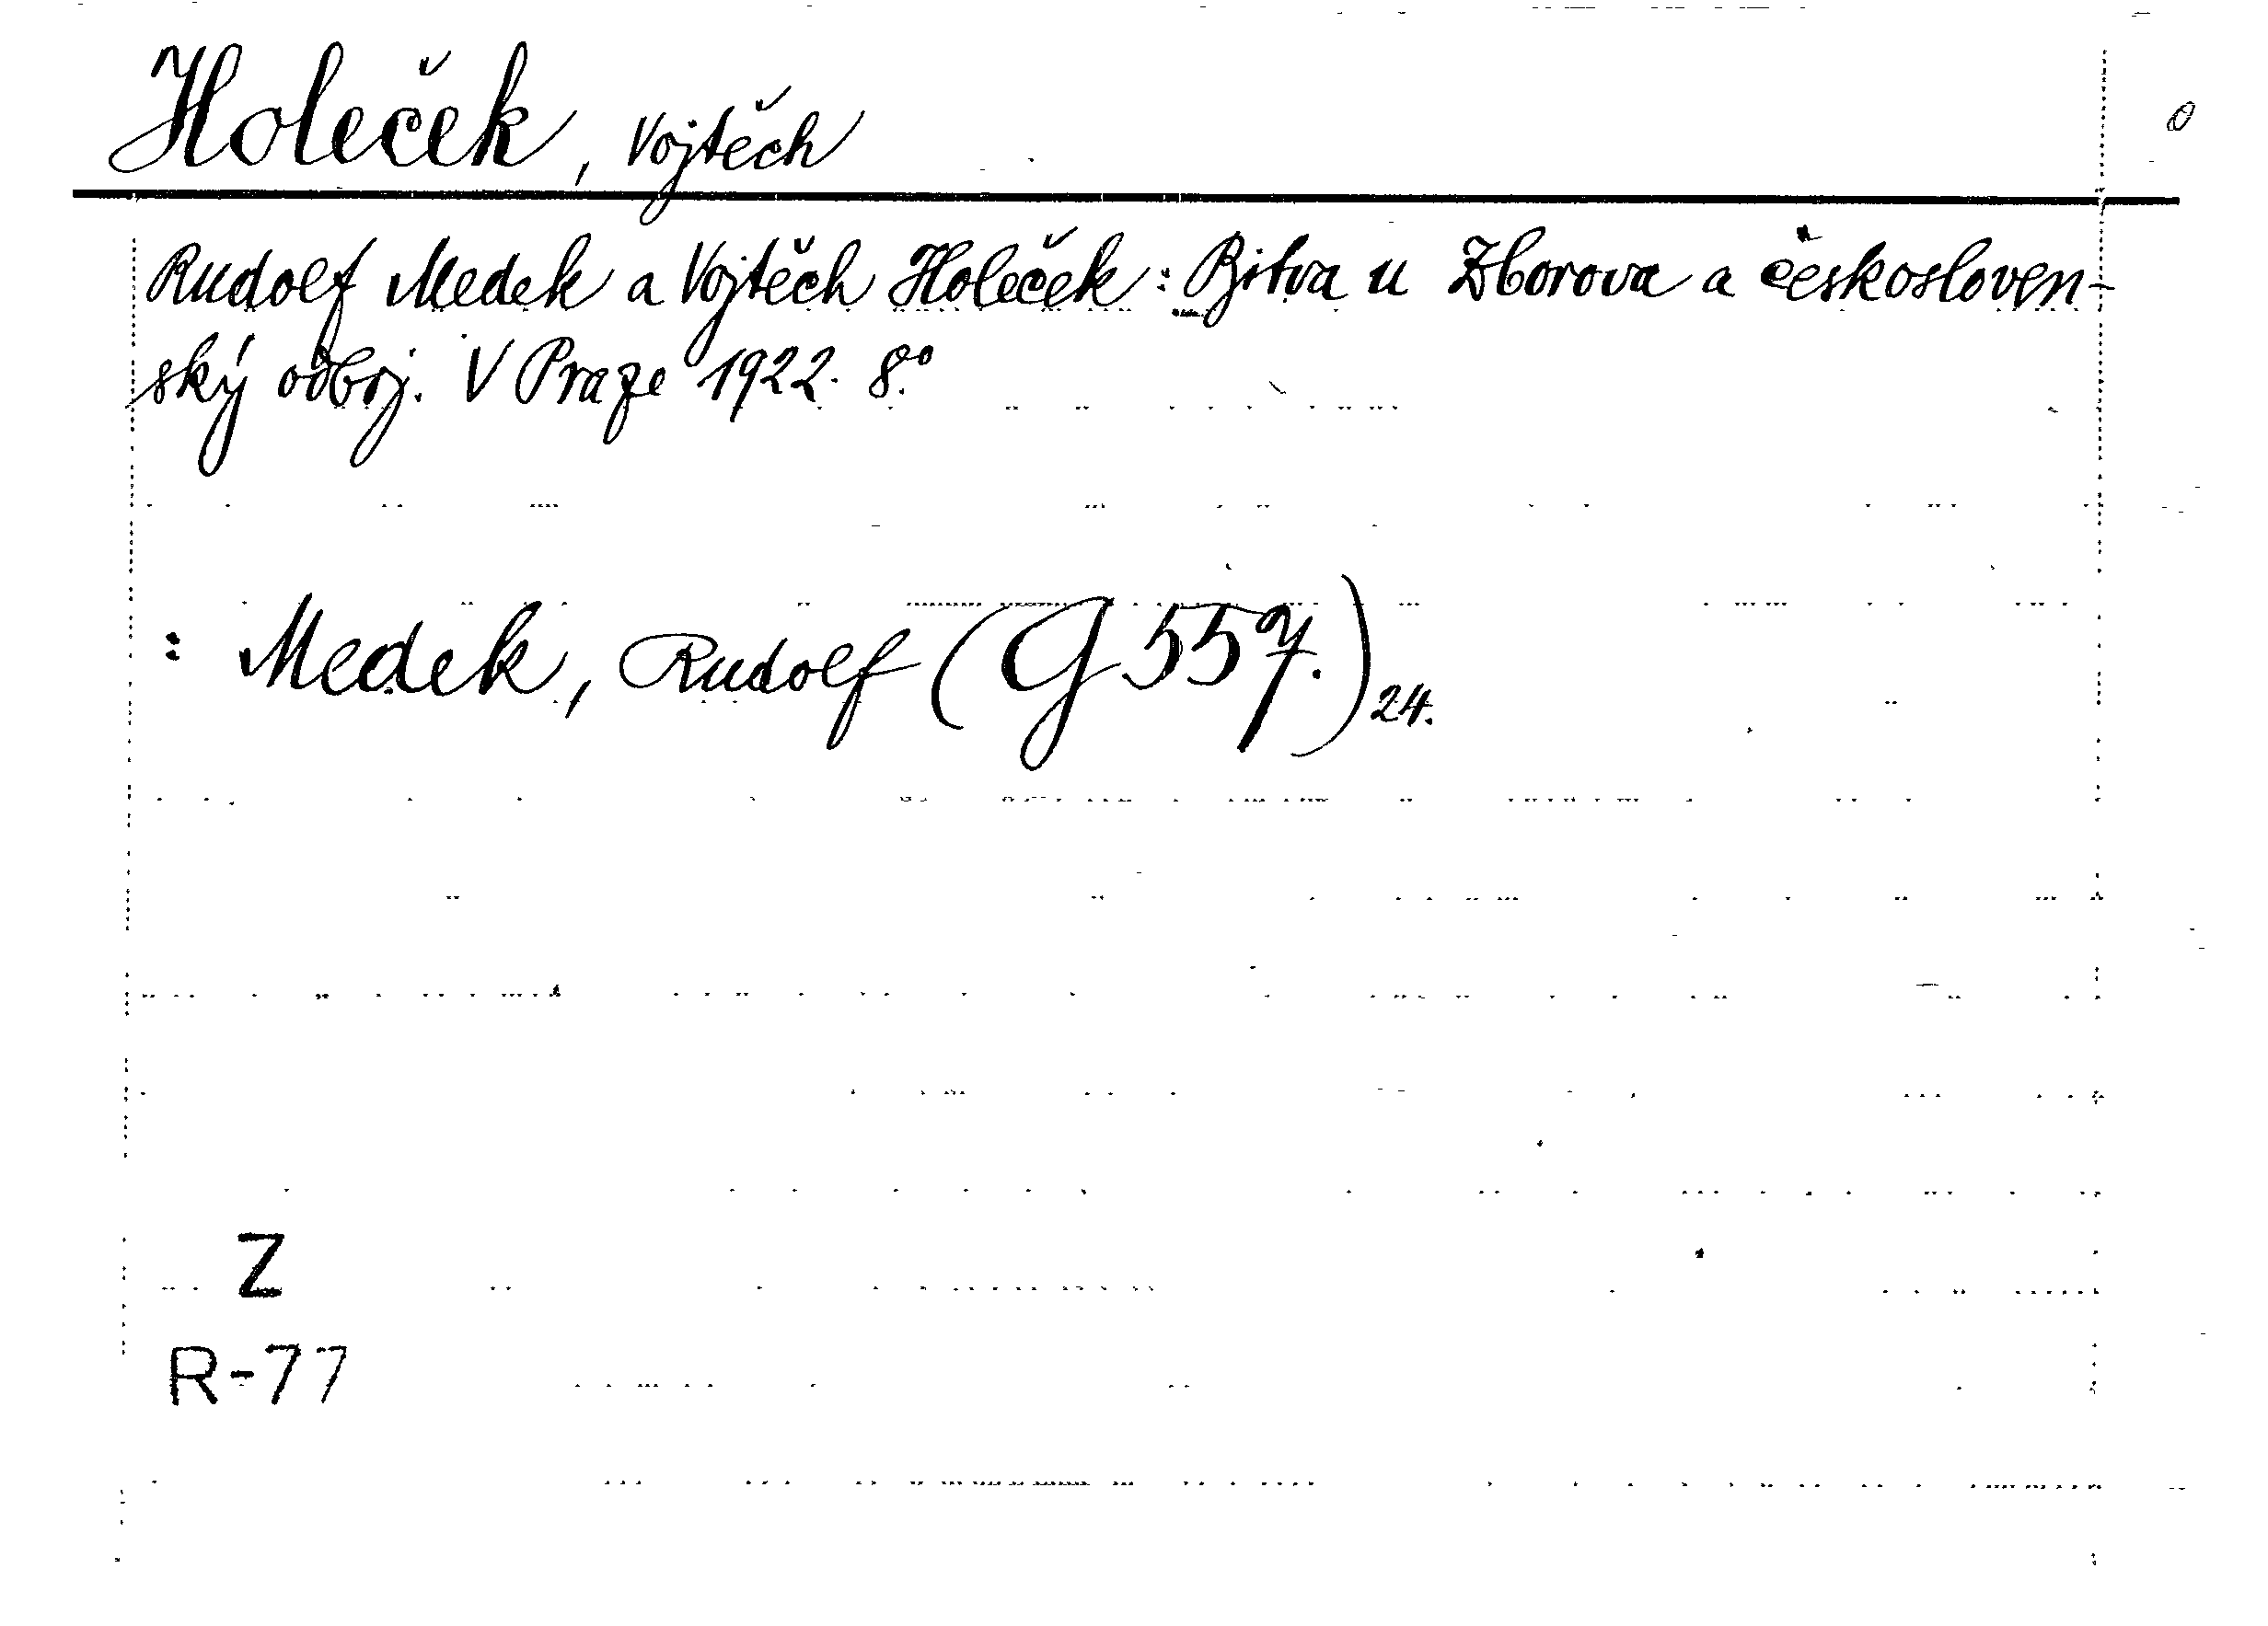 Holeček, Vojtěch
0
Rudolf Medek a Vojtěch Holeček: Bitva u Zborova a českosloven-
ský odboj. V Praze 1922. 8.°
: Medek, Rudolf (G 557.) 24.
Z
R-77